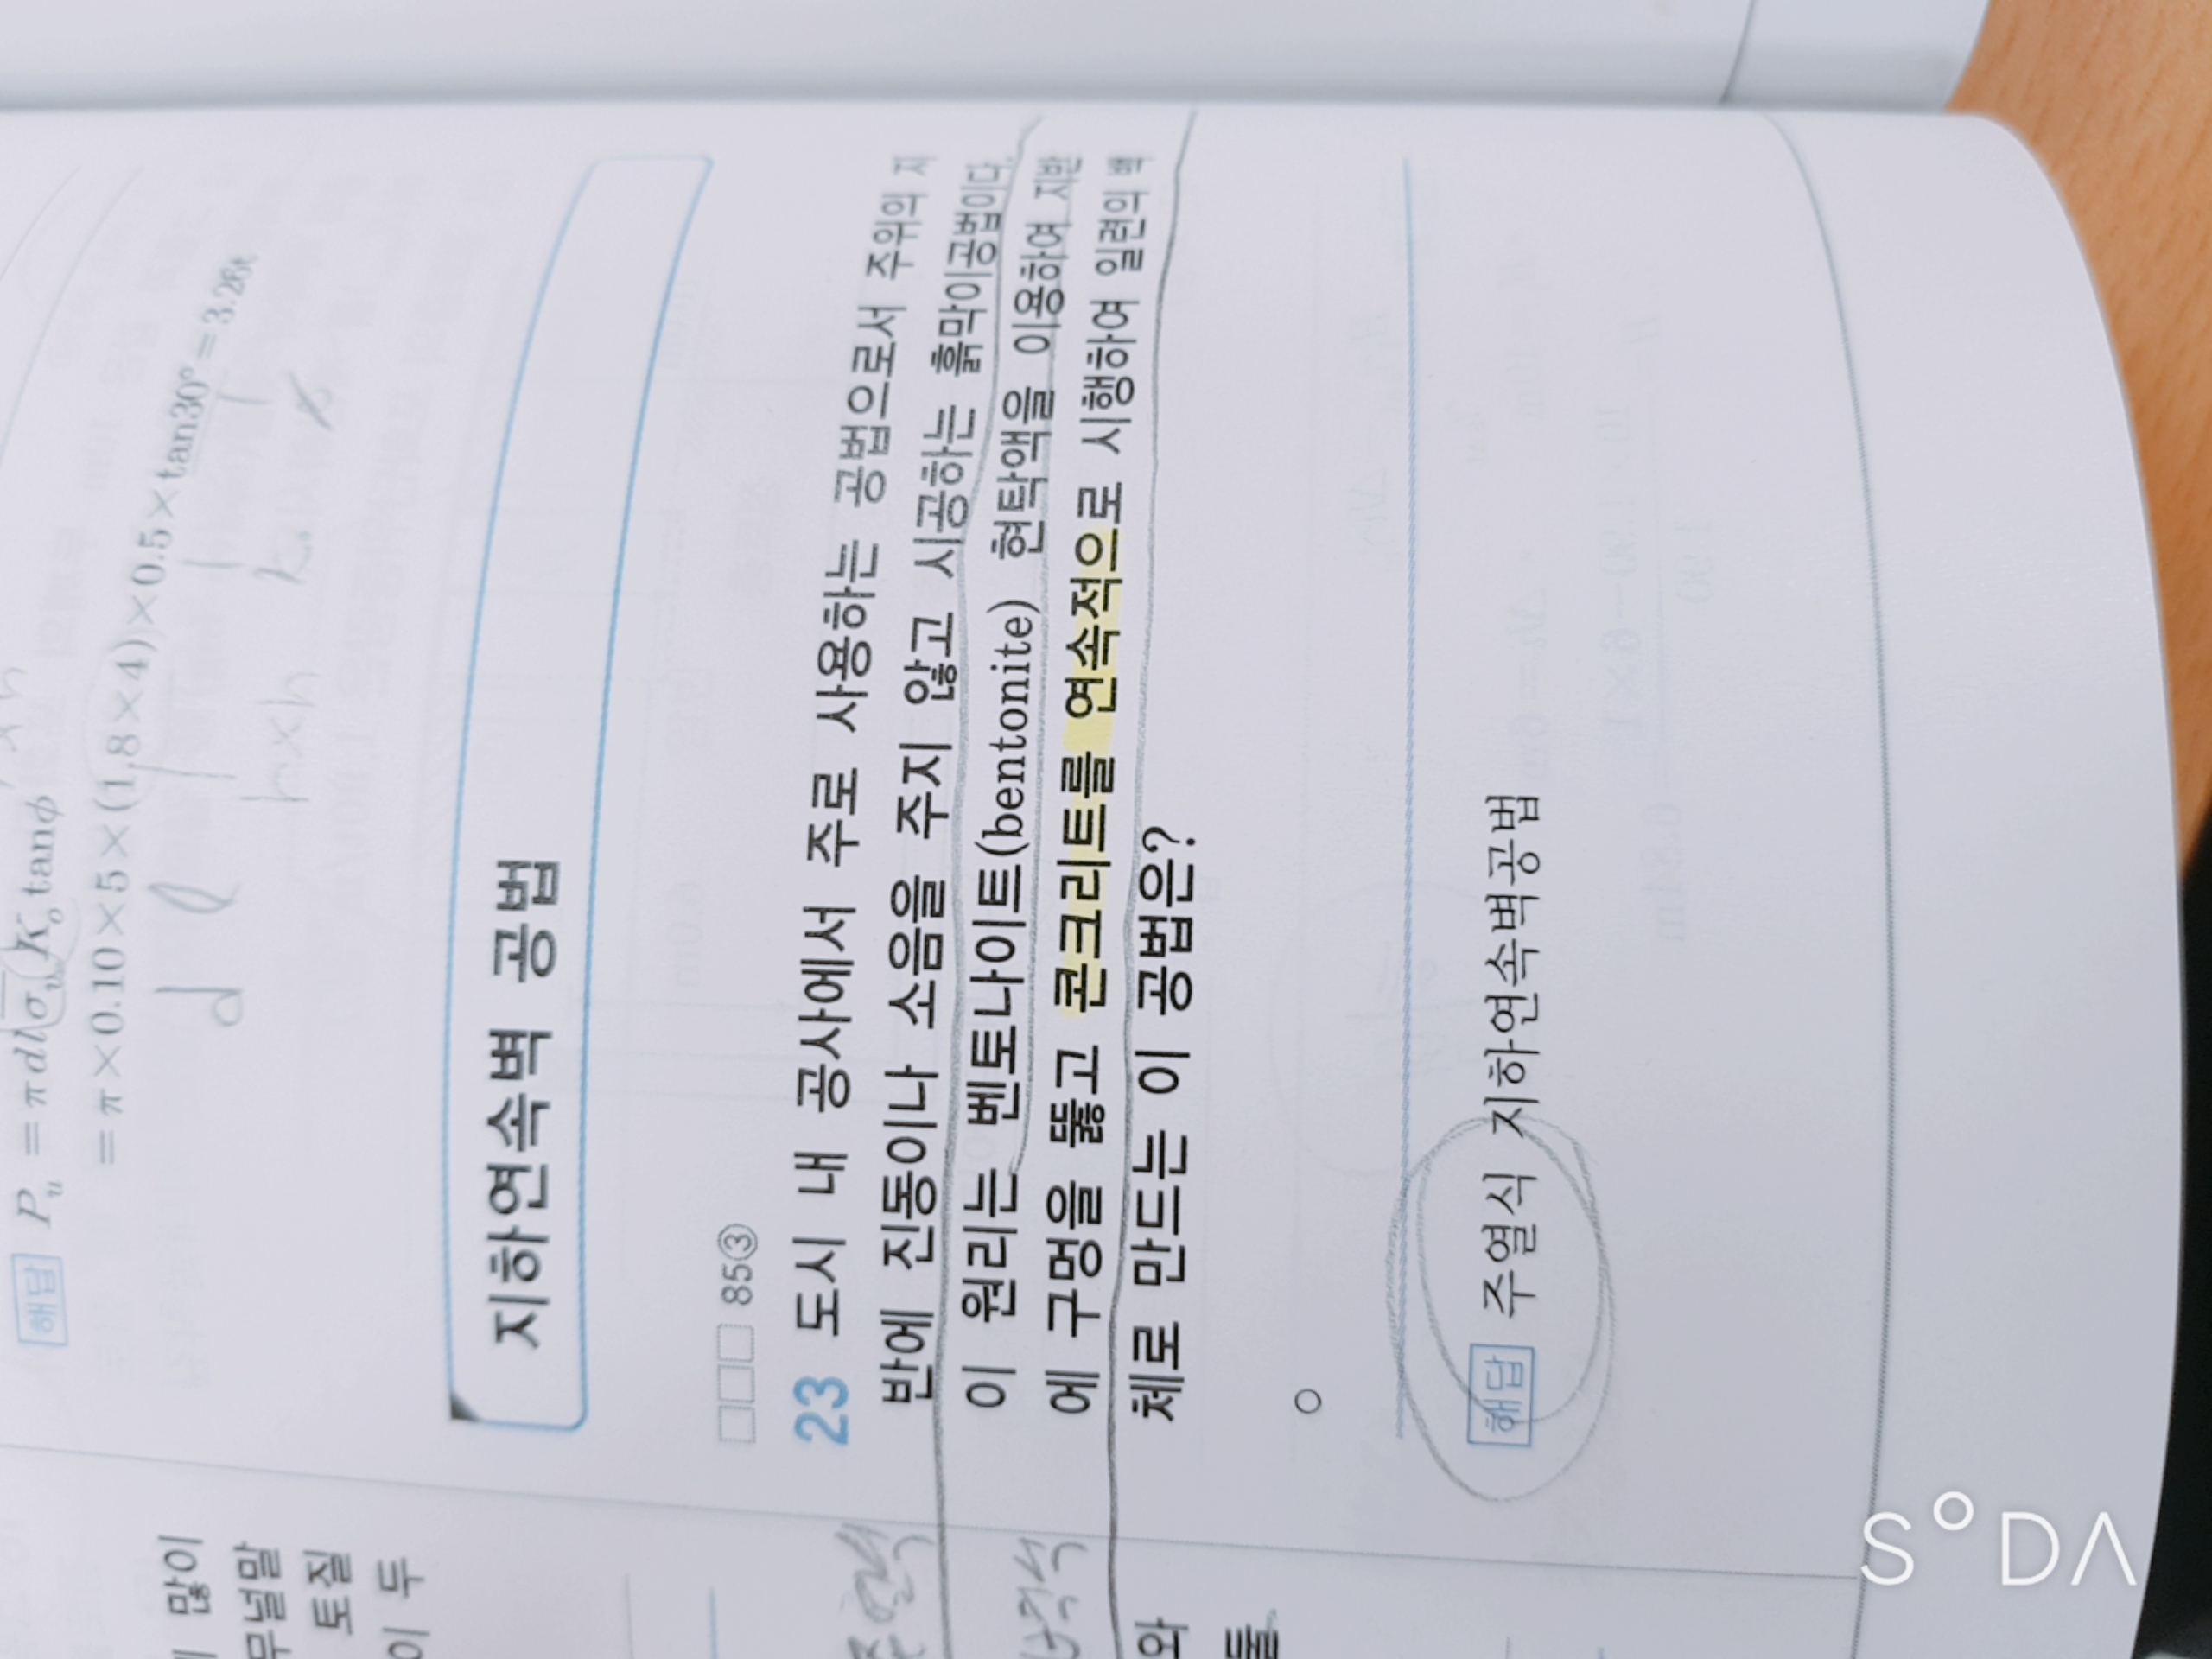 해답 P_u = πdlσ_v K_o tanφ
= π×0.10×5×(1.8×4)×0.5×tan30° = 3.26t
d l
h×h
지하연속벽 공법
85③
23 도시 내 공사에서 주로 사용하는 공법으로서 주위의 지
반에 진동이나 소음을 주지 않고 시공하는 흙막이공법이다.
이 원리는 벤토나이트(bentonite) 현탁액을 이용하여 지반
에 구멍을 뚫고 콘크리트를 연속적으로 시행하여 일련의 벽
체로 만드는 이 공법은?
해답 주열식 지하연속벽공법
많이
무널말
토질
이 두
와
둘
SODA